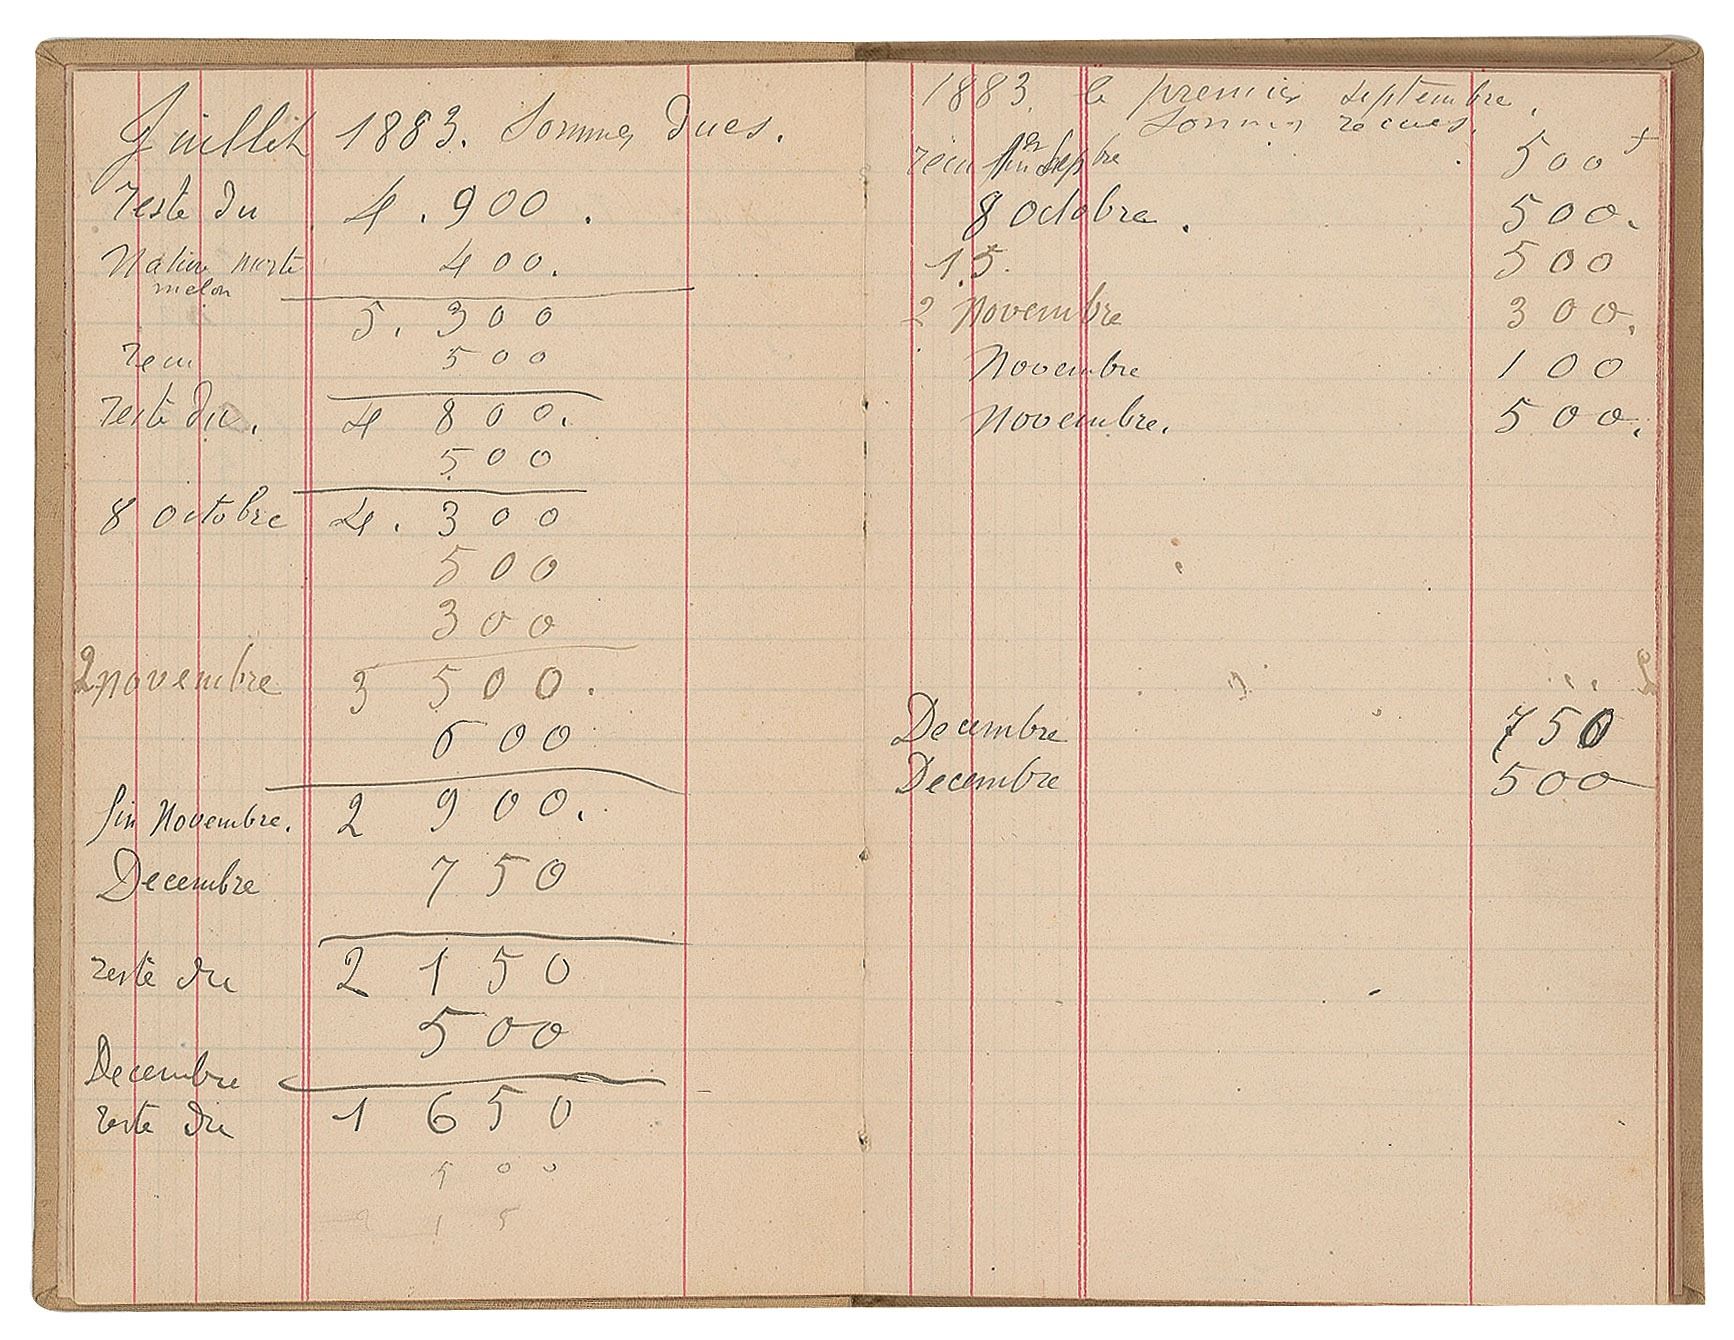 Juillet 1883. Sommes dues.
reste du 4.900.
Nature morte 400.
melon
5.300
recu 500
reste du. 4 800.
500
8 octobre 4.300
500
300
2 novembre 3 500.
600
fin Novembre. 2 900.
Decembre 750
reste du 2 150
500
Decembre
reste du 1 650
500
15
1883. le premier septembre.
Sommes recues.
recu septbre 500
8 octobre. 500.
15. 500
2 Novembre 300.
Novembre 100
Novembre. 500.
Decembre 750
Decembre 500